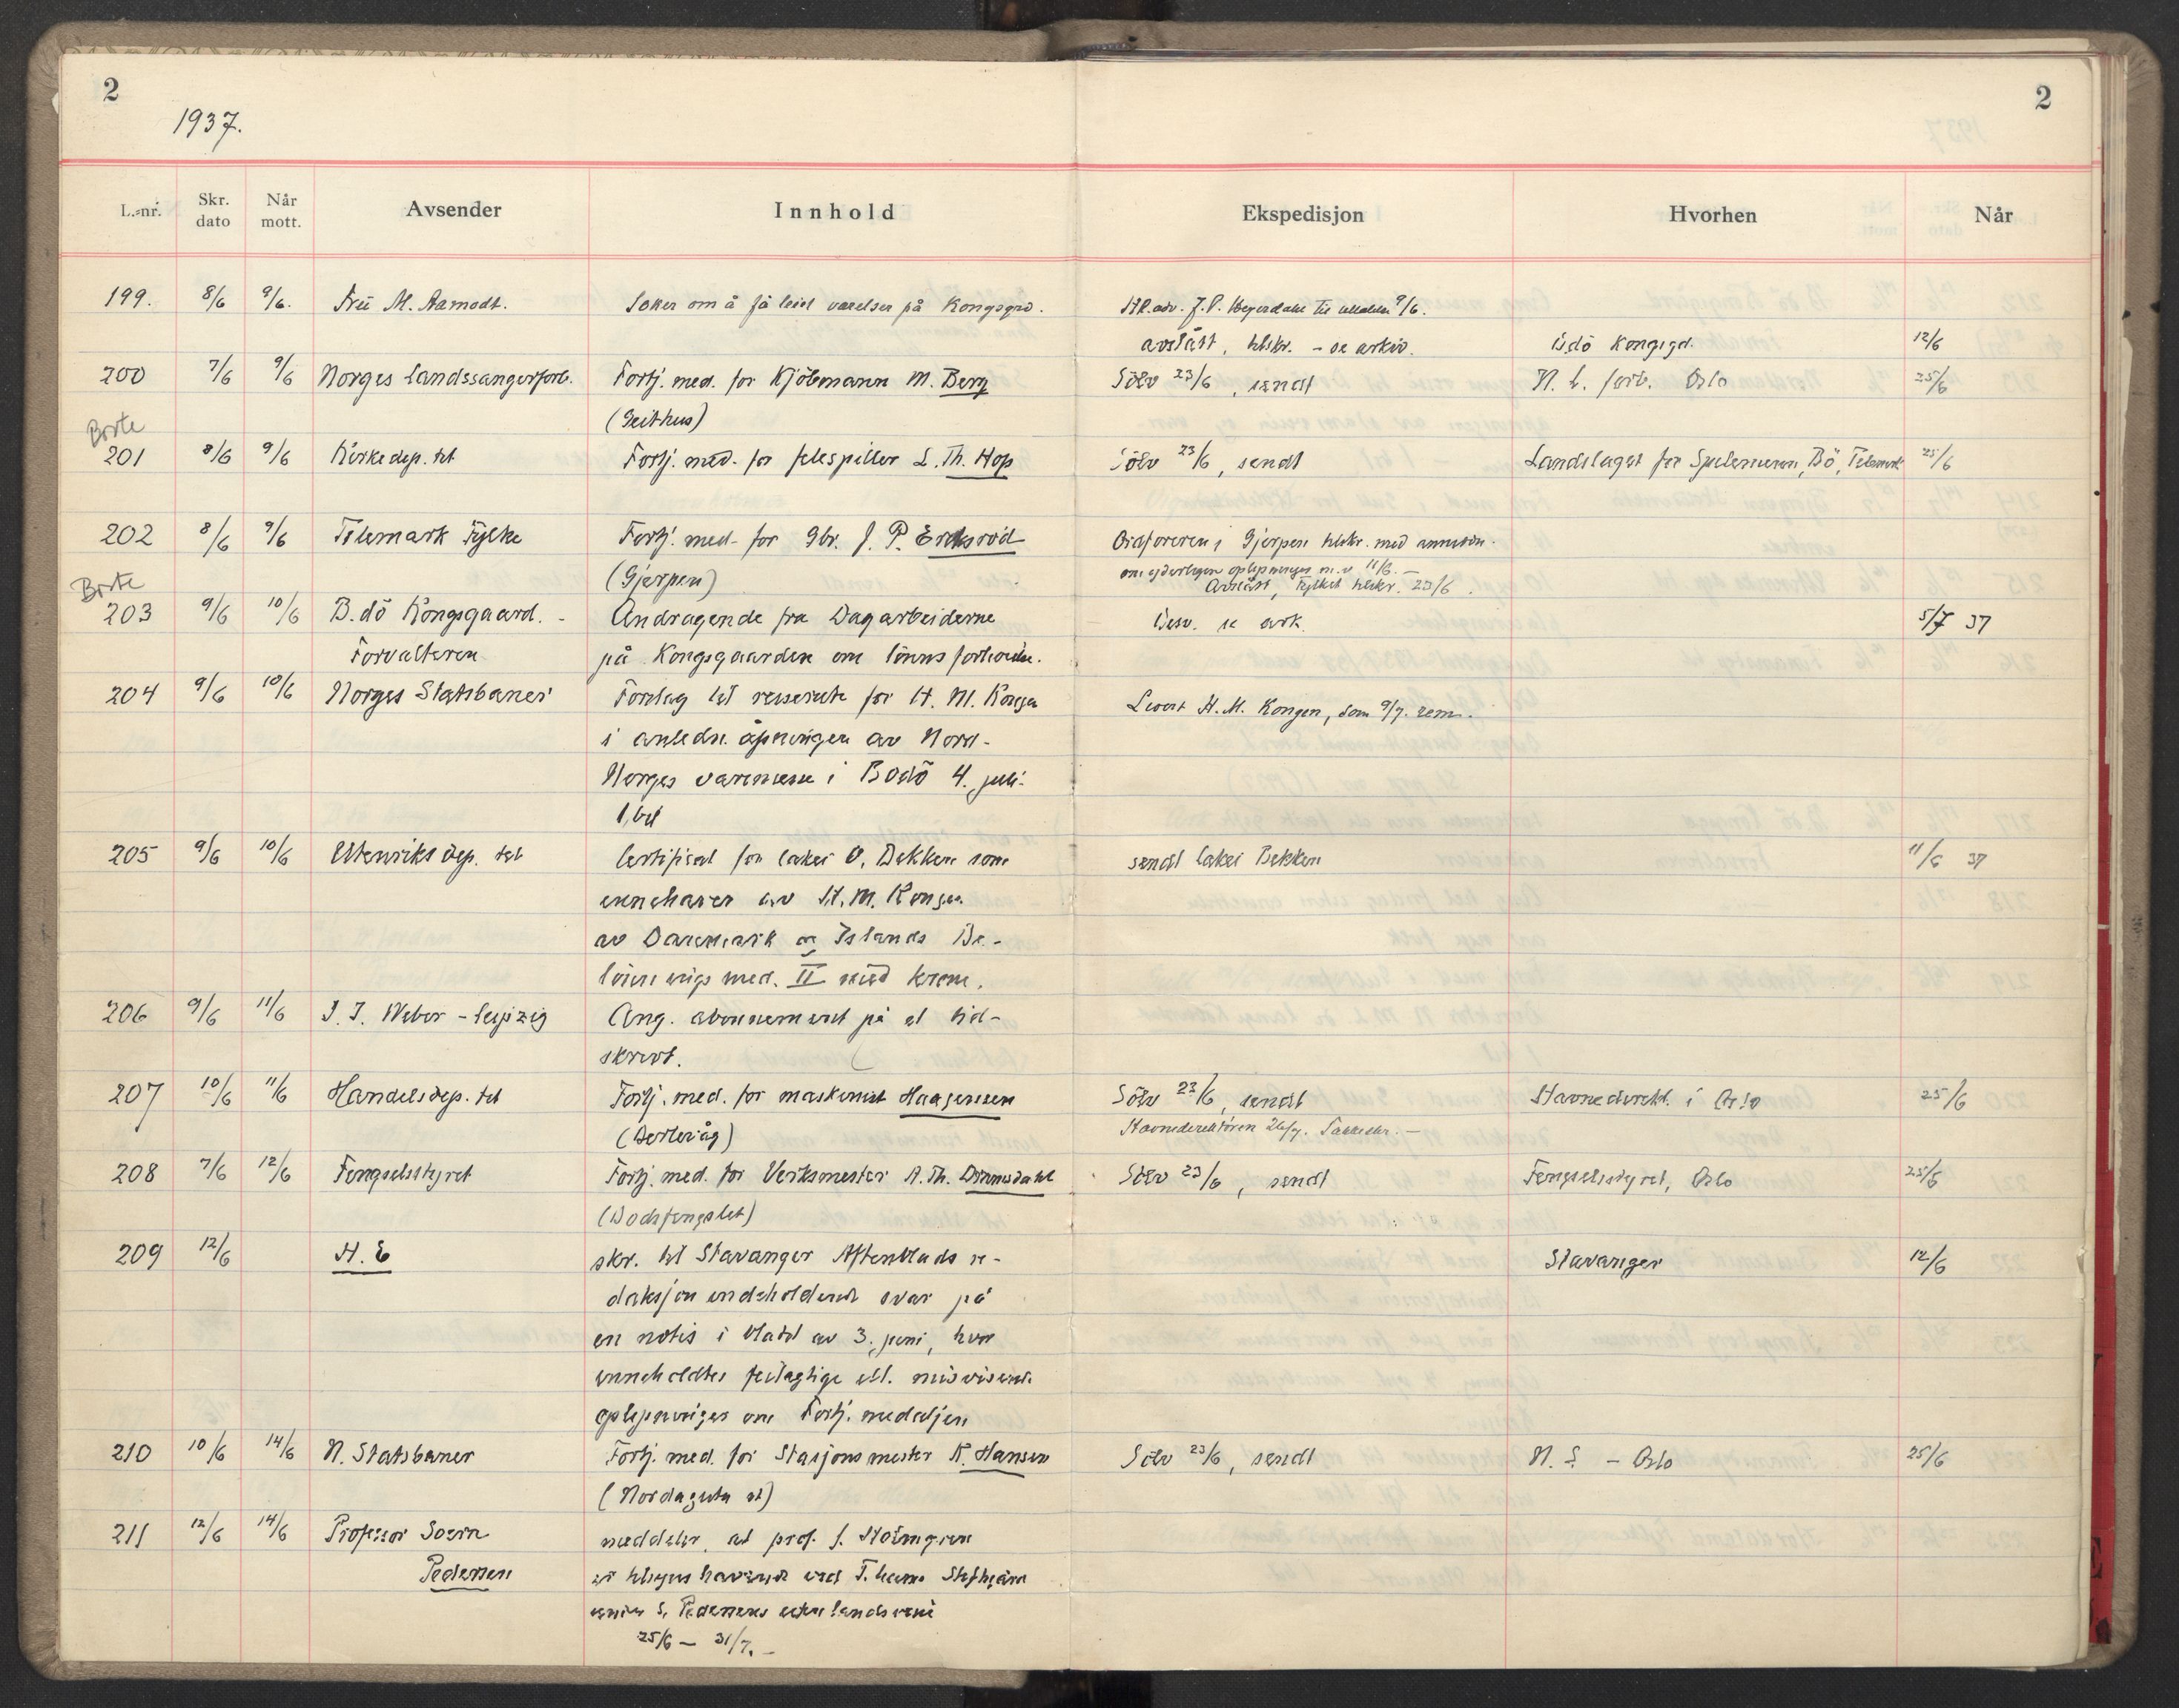 2
2
1937.
L.nr. Skr. dato Når mott. Avsender Innhold Ekspedisjon Hvorhen Når
199. 8/6 9/6. Fru M. Aamodt. Søker om å få leid værelser på Kongsgrd. H.R.adv. J. P. Heyerdahl til uttalelse 9/6.
avslått, tilskr. - se arkiv. Kongsgd. 12/6
200 7/6 9/6 Norges Landssangerforb. Fortj. med. for Kjöbmann M. Berg Sölv 23/6, sendt N. L. forb. Oslo 25/6
(Geithus)
Borte
201 8/6 9/6 Kirkedep. tet Fortj. med. for felespiller L. Th. Hop Sölv 23/6, sendt Landslaget for Spelemenn, Bö, Telemark 25/6
202 8/6 9/6 Telemark Fylke Fortj. med. for Gbr. J. P. Eriksröd Ordføreren i Gjerpen tilskr. med anmodn.
(Gjerpen) om yderligere oplysninger m.v 11/6. -
Avslått, Fylket tilskr. 23/6.
Borte
203 9/6 10/6 B.dö Kongsgaard. - Andragende fra Dagarbeiderne Besv. se ark. 5/7 37
Forvalteren på Kongsgaarden om lönns forhoielse.
204 9/6 10/6 Norges Statsbaner Forslag til reiserute for H. M. Kongen Levert H. M. Kongen, som 9/7. rem.
i anledn. åpningen av Nord-
Norges varemesse i Bodö 4. juli.
1, bil
205 9/6 10/6 Utenriksdep. tet Certifikat for lakei O. Bekken som sendt lakei Bekken 11/6 37
innehaver av H. M. Kongen
av Danmark og Islands Be-
lönnings med. II med krone.
206 9/6 11/6 J. J. Weber - Leipzig Ang. abonnement på et tid-
skrivt.
207 10/6 11/6 Handelsdep. tet Fortj. med. for maskinist Haagensen Sölv 23/6, sendt Havnedirekt. i Oslo 25/6
(Berlevåg) Havnedirektören 26/7. Takkeskr. -
208 7/6 12/6 Fengselsstyret Fortj. med. for Verksmester A. Th. Drinnsdahl Sölv 23/6, sendt Fengselsstyret, Oslo 25/6
(Bodsfengslet)
209 12/6 H. E skr. til Stavanger Aftenblads re- Stavanger 12/6
daksjon indeholdende svar på
en notis i bladet av 3. juni, hvor
inneholdtes feilagtige ell. misvisende
oplysninger om Fortj. medaljen
210 10/6 14/6 N. Statsbaner Fortj. med. for Stasjonsmester K. Hansen Sölv 23/6, sendt N. S. - Oslo 25/6
(Nordagutu st)
211 12/6 14/6 Professor Svern meddeler, at prof. J. Holmgren
Pedersen er tilsynshavende ved
under S. Pedersens utenlandsreise
25/6 - 31/7. -